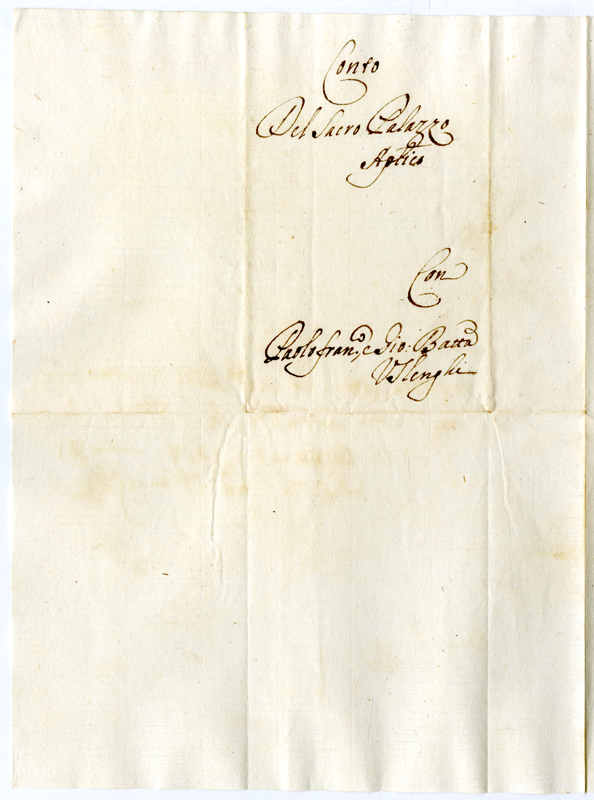 Conto
Del Sacro Palazzo
Aptico
Con
Paolo fran.co e Gio: Batta
Uslenghi